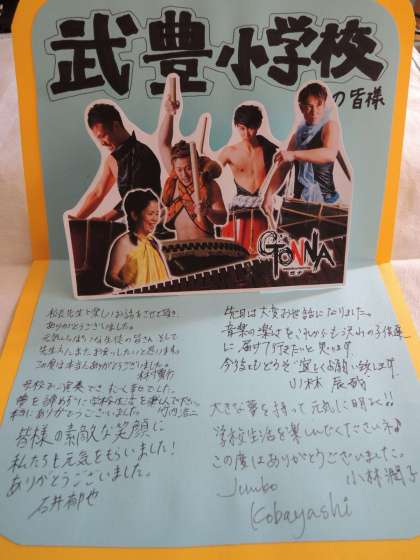 武豊小学校
の皆様
GONNA
ゴンナ
校長先生と楽しいお話をさせて頂き、
ありがとうございました。
元気いっぱいな生徒の皆さん、そして
先生方にまたお会いしたいと思います。
この度は本当にありがとうございました。
母校での演奏でき、とても幸せでした。
夢を諦めずに学校生活を楽しんで下さい。
本当にありがとうございました。
皆様の素敵な笑顔に
私たちも元気をもらいました!
ありがとうございました。
石井
先日は大変お世話になりました。
音楽の楽しさをこれからも沢山の子供達
に届けて行きたいと思います。
今後ともどうぞ宜しくお願い致します。
小林 辰哉
大きな夢を持って元気に明るく!!
学校生活を楽しんでくださいネ♪
この度はありがとうございました。
小林潤子
Jumbo
Kobayashi